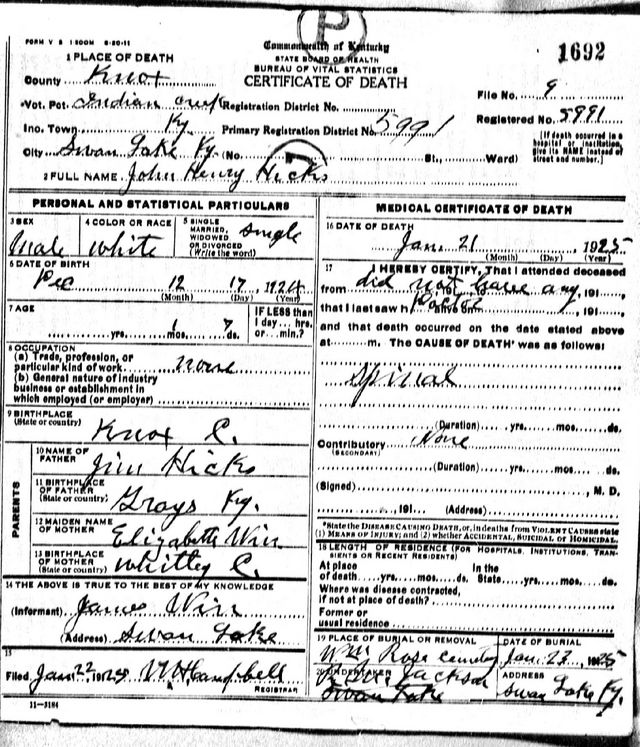 P
FORM V S 1 500M 8-20-11
Commonwealth of Kentucky
STATE BOARD OF HEALTH
BUREAU OF VITAL STATISTICS
CERTIFICATE OF DEATH
1692
1 PLACE OF DEATH
County Knox
File No. 9
Vot. Pct. Indian Creek Registration District No.
Registered No. 5991
Inc. Town Ky Primary Registration District No. 5991
[If death occurred in a hospital or institution, give its NAME instead of street and number.]
City Swan Lake Ky. (No. St., Ward)
2 FULL NAME John Henry Hicks
PERSONAL AND STATISTICAL PARTICULARS
3 SEX Male
4 COLOR OR RACE White
5 SINGLE, MARRIED, WIDOWED OR DIVORCED (Write the word) Single
6 DATE OF BIRTH
Dec 12 17, 1924
(Month) (Day) (Year)
7 AGE
yrs. 1 mos. 7 ds.
IF LESS than 1 day... hrs. or... min.?
8 OCCUPATION
(a) Trade, profession, or particular kind of work none
(b) General nature of industry business or establishment in which employed (or employer)
9 BIRTHPLACE (State or country) Knox C.
PARENTS
10 NAME OF FATHER Jim Hicks
11 BIRTHPLACE OF FATHER (State or country) Grays Ky.
12 MAIDEN NAME OF MOTHER Elizabeth
13 BIRTHPLACE OF MOTHER (State or country) Whitley C.
14 THE ABOVE IS TRUE TO THE BEST OF MY KNOWLEDGE
(Informant) James
(Address) Swan Lake
15
Filed Jan 22 1925 Campbell
REGISTRAR
11-3184
MEDICAL CERTIFICATE OF DEATH
16 DATE OF DEATH
Jan. 21, 1925
(Month) (Day) (Year)
17 I HEREBY CERTIFY, That I attended deceased
from did not have any, 191
that I last saw h Doctor alive on
and that death occurred on the date stated above
at m. The CAUSE OF DEATH* was as follows:
Spinal
(Duration) yrs. mos. ds.
Contributory None
(SECONDARY)
(Duration) yrs. mos. ds.
(Signed) , M. D.
, 191 (Address)
*State the DISEASE CAUSING DEATH, or, in deaths from VIOLENT CAUSES state
(1) MEANS OF INJURY; and (2) whether ACCIDENTAL, SUICIDAL or HOMICIDAL.
18 LENGTH OF RESIDENCE (FOR HOSPITALS, INSTITUTIONS, TRANSIENTS OR RECENT RESIDENTS)
At place of death yrs. mos. ds. In the State yrs. mos. ds.
Where was disease contracted,
if not at place of death?
Former or
usual residence
19 PLACE OF BURIAL OR REMOVAL
Wm Rose Cemetery
DATE OF BURIAL
Jan. 23, 1925
20 UNDERTAKER
Jackson
Swan Lake
ADDRESS
Swan Lake Ky.